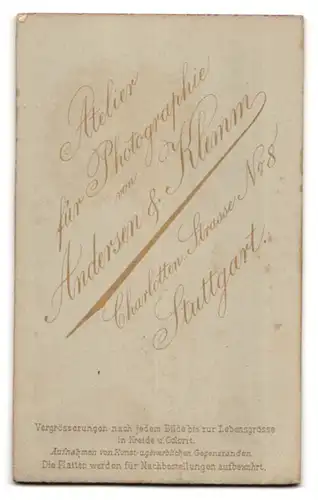 Atelier
für Photographie
von
Andersen & Klemm
Charlotten Strasse Nr. 8
Stuttgart.
Vergrösserungen nach jedem Bilde bis zur Lebensgrösse
in Kreide u. Colorit.
Aufnahmen von Kunst- u. gewerblichen Gegenständen.
Die Platten werden für Nachbestellungen aufbewahrt.